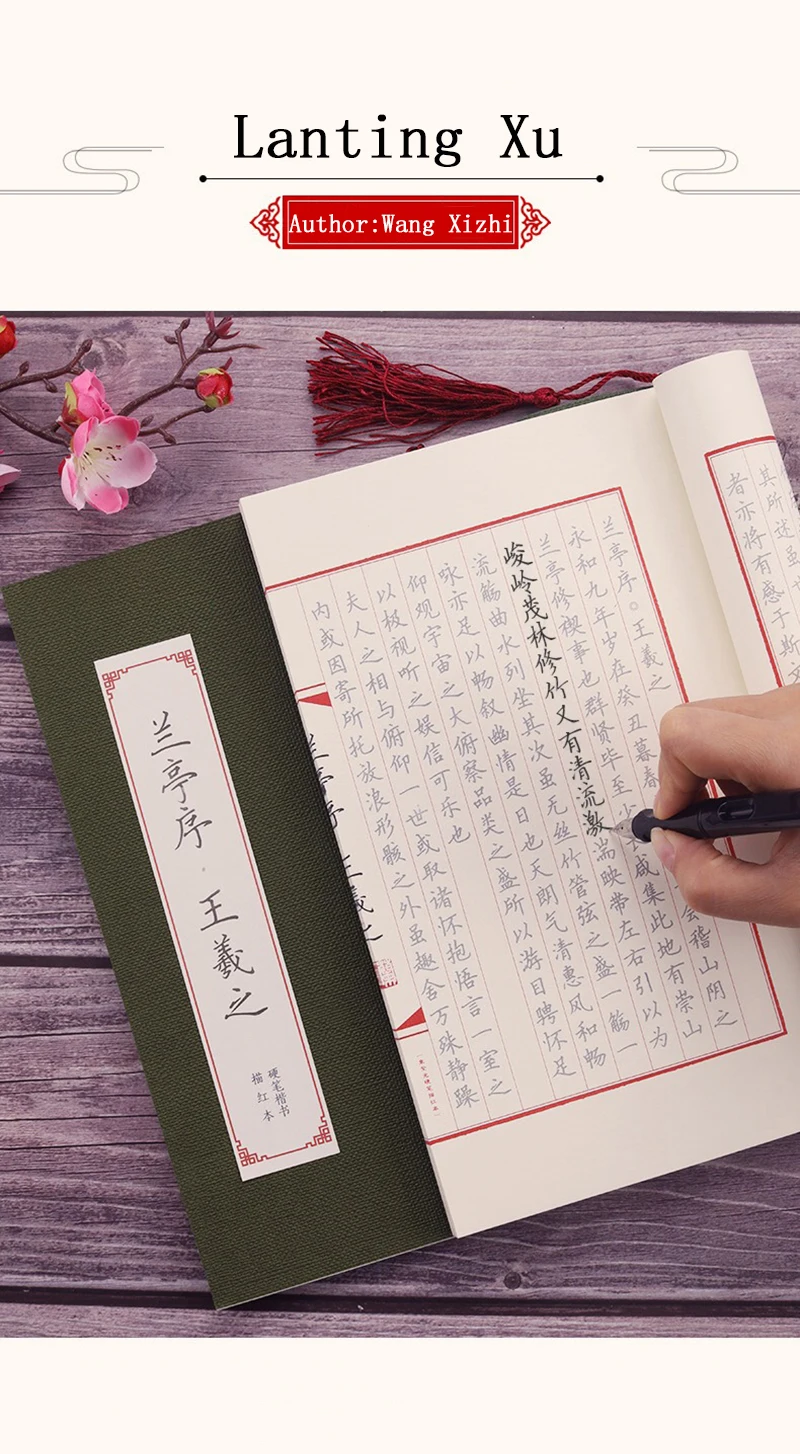 Lanting Xu
Author:Wang Xizhi
其所述虽
者亦将有感于斯
兰亭序。王羲之
永和九年岁在癸丑暮春
会稽山阴之
兰亭修禊事也群贤毕至少
咸集此地有崇山
峻岭茂林修竹又有清流激湍映带左右引以为
流觞曲水列坐其次虽无丝竹管弦之盛一觞一
咏亦足以畅叙幽情是日也天朗气清惠风和畅
仰观宇宙之大俯察品类之盛所以游目骋怀足
以极视听之娱信可乐也
夫人之相与俯仰一世或取诸怀抱悟言一室之
内或因寄所托放浪形骸之外虽趣舍万殊静躁
兰亭序 王羲之
兰亭序·王羲之
硬笔楷书
描红本